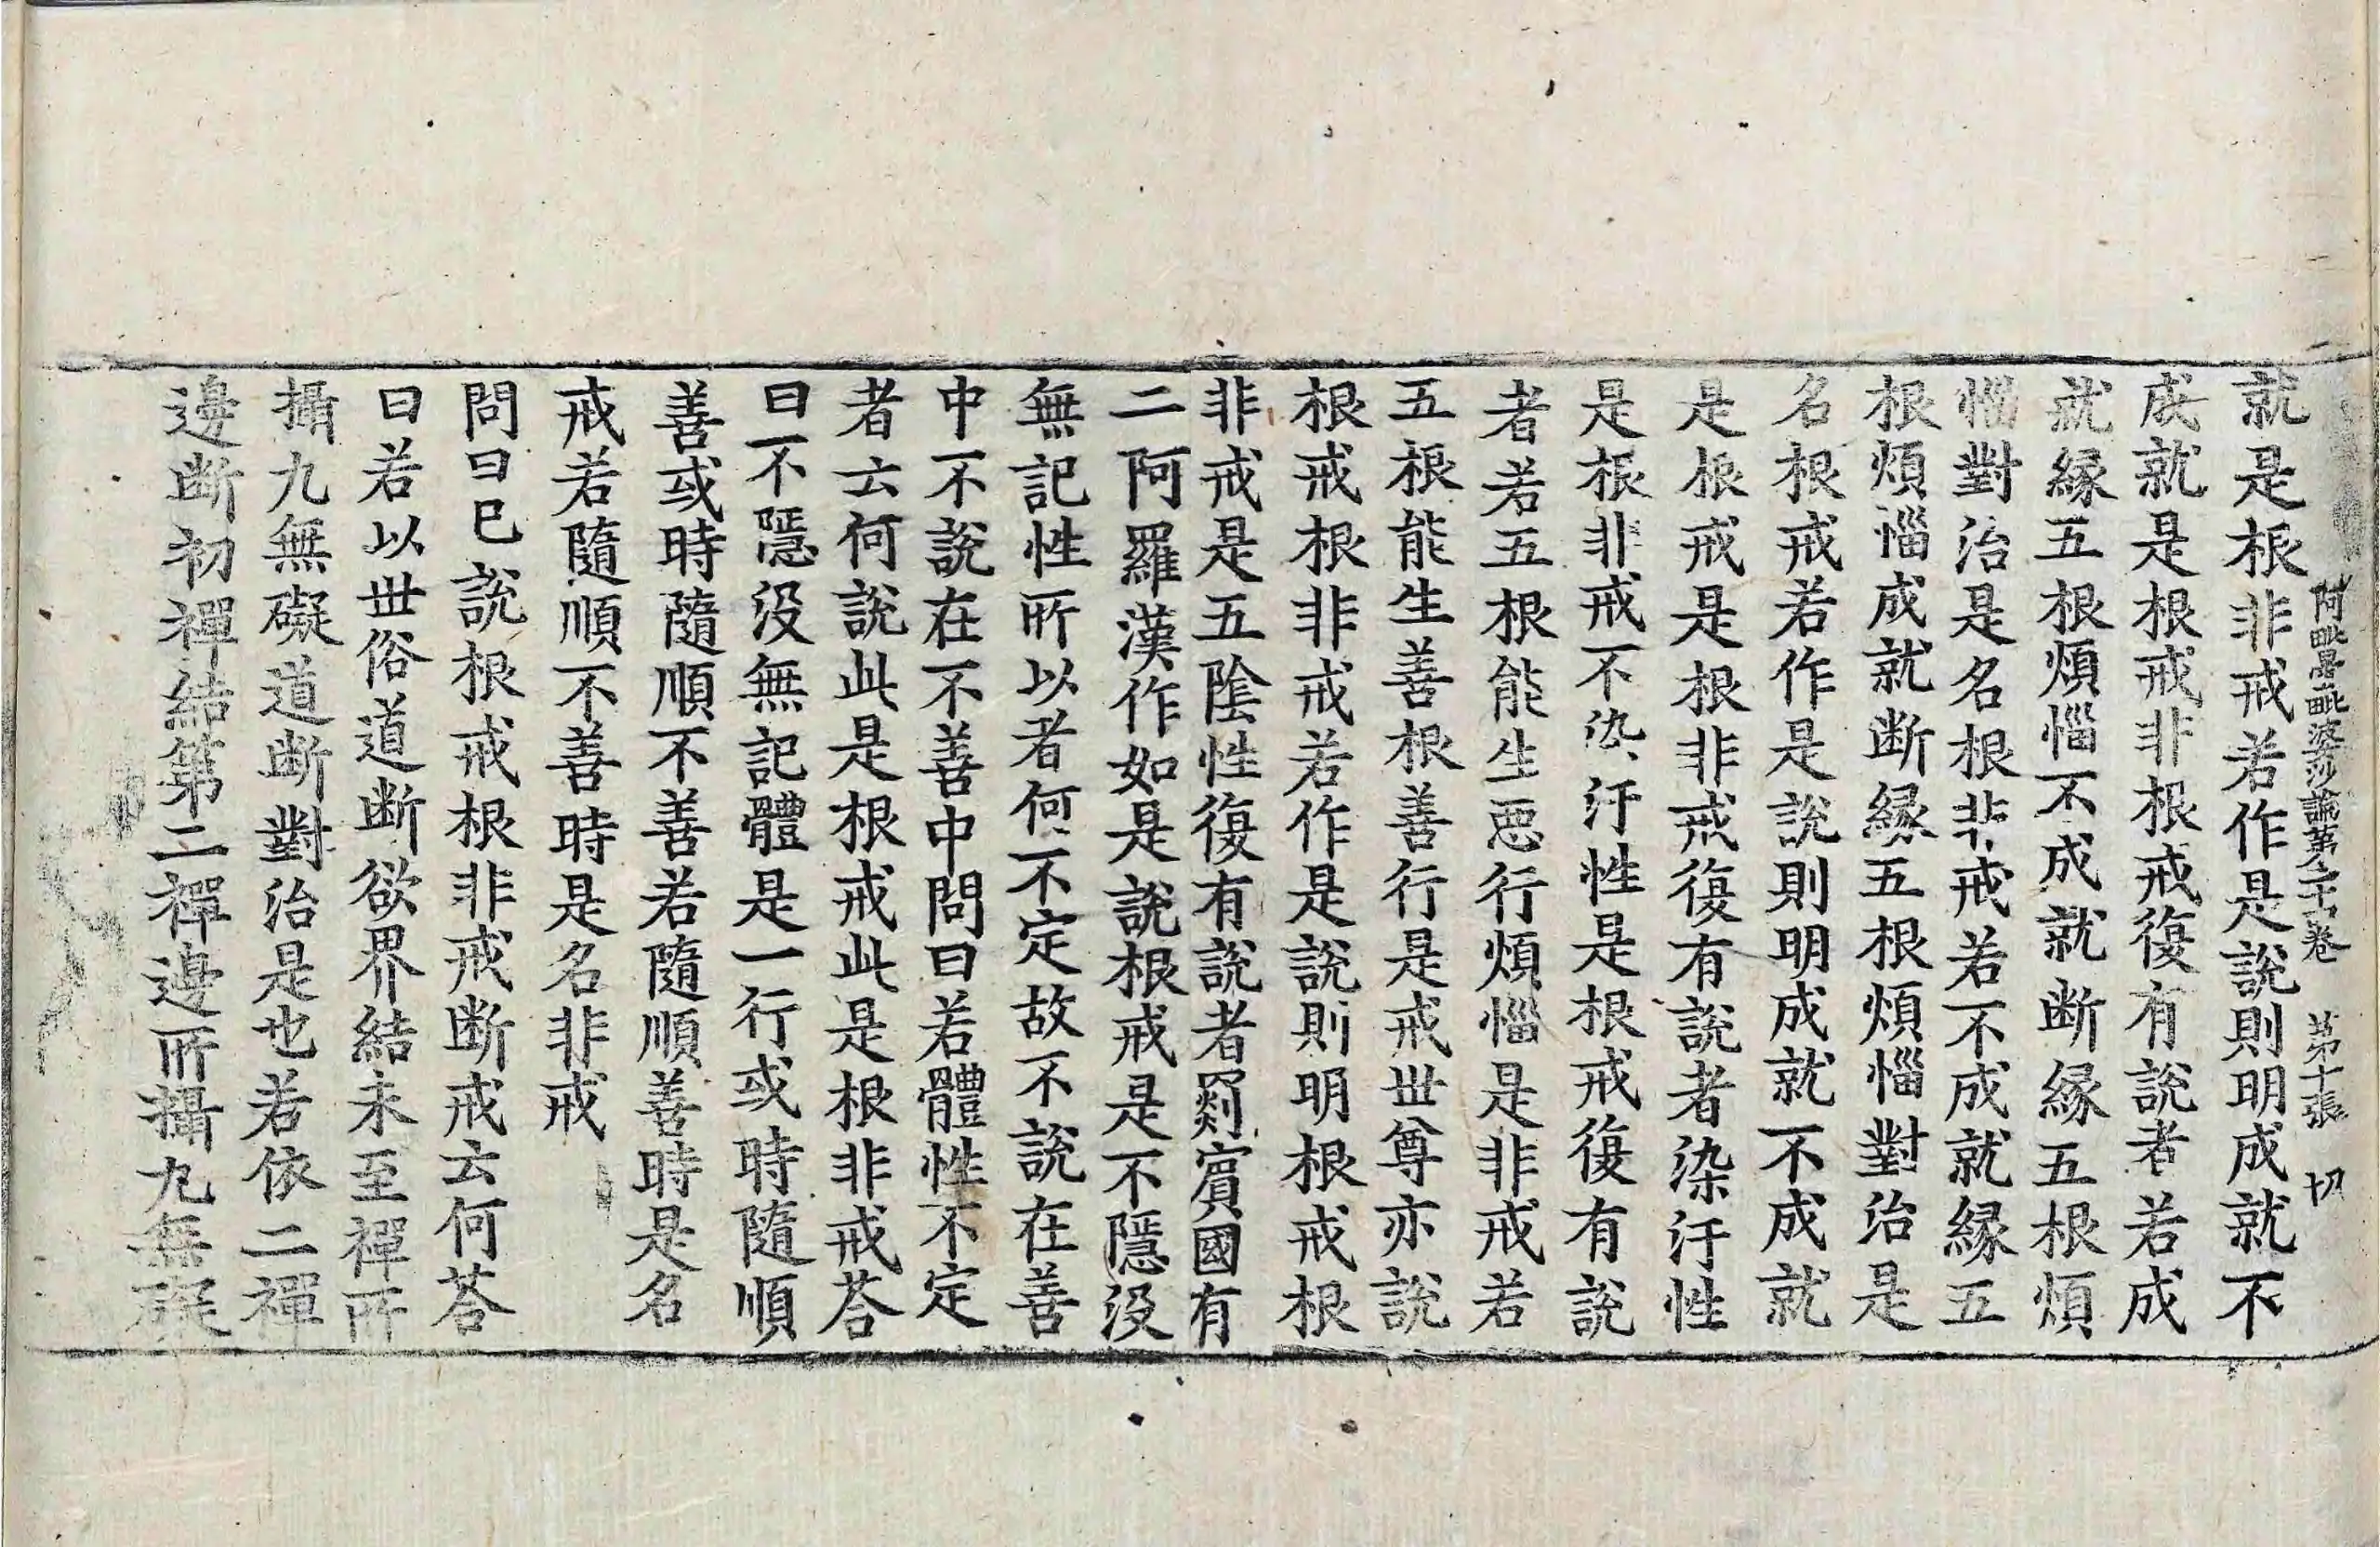 阿毗曇毗婆沙論第二十四卷 第十張 切
就是根非戒若作是説則明成就不
成就是根戒非根戒復有説者若成
就縁五根煩惱不成就断縁五根煩
惱對治是名根非戒若不成就縁五
根煩惱成就断縁五根煩惱對治是
名根戒若作是説則明成就不成就
是根戒是根非戒復有説者染汙性
是根非戒不染汙性是根戒復有説
者若五根能生惡行煩惱是非戒若
五根能生善根善行是戒世尊亦説
根戒根非戒若作是説則明根戒根
非戒是五陰性復有説者罽賓國有
二阿羅漢作如是説根戒是不隱没
無記性所以者何不定故不説在善
中不説在不善中問曰若體性不定
者云何説此是根戒此是根非戒荅
曰不隱没無記體是一行或時隨順
善或時隨順不善若隨順善時是名
戒若隨順不善時是名非戒
問曰已説根戒根非戒断戒云何荅
曰若以世俗道断欲界結未至禪所
攝九無礙道断對治是也若依二禪
邊断初禪結第二禪邊所攝九無礙